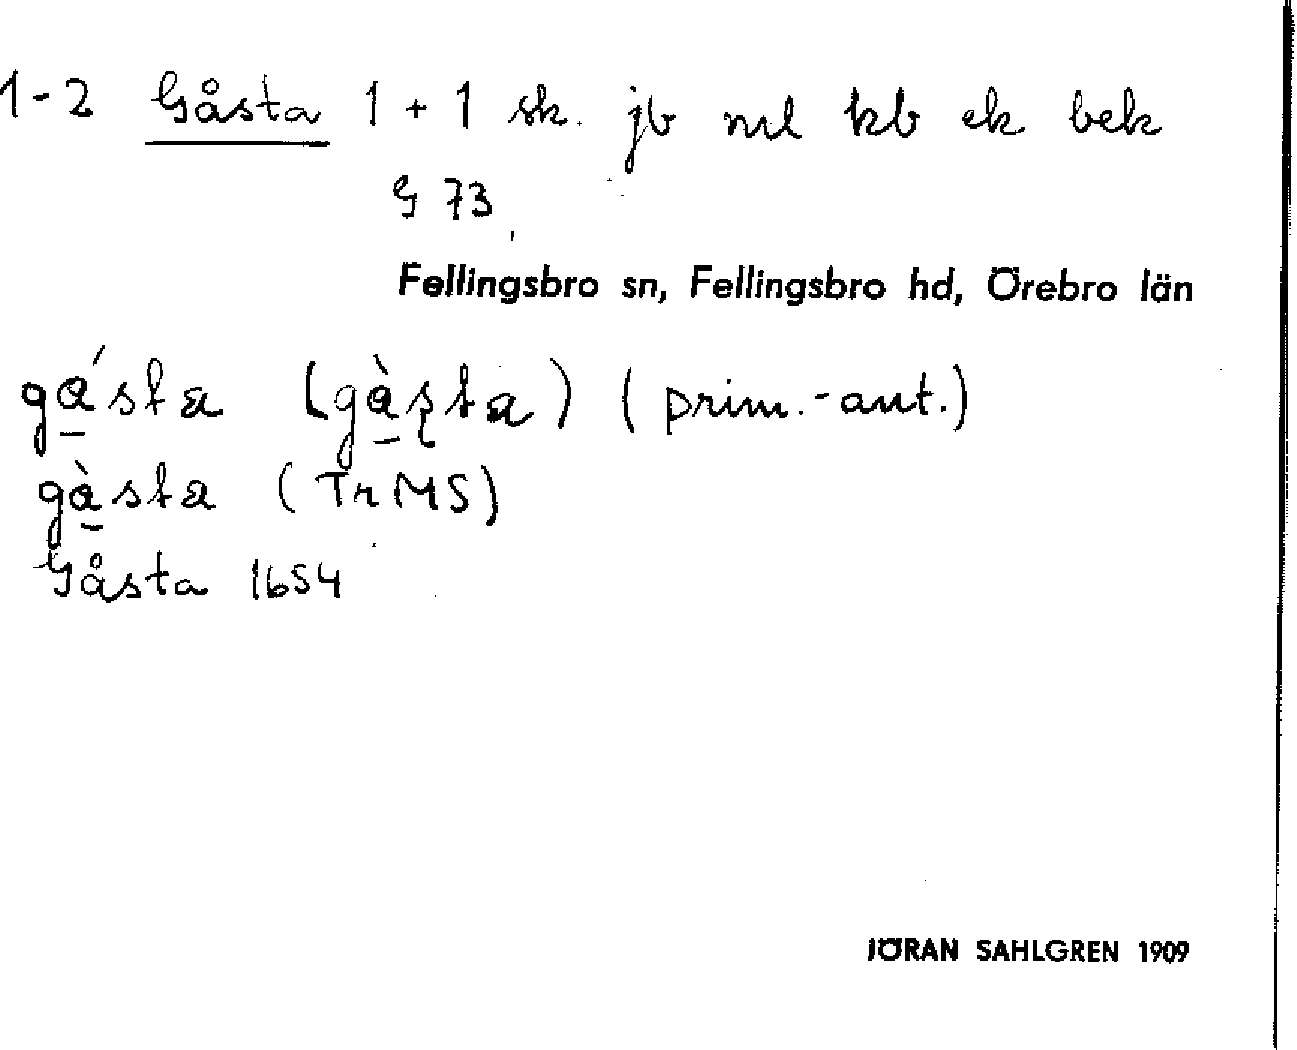 1-2 Gåsta 1 + 1 sk. jb ml kb ek bek
G 73
Fellingsbro sn, Fellingsbro hd, Örebro län
gá̱sta (gà̱şta) (prim.-ant.)
gà̱sta (Tr MS)
Gåsta 1654
JÖRAN SAHLGREN 1909